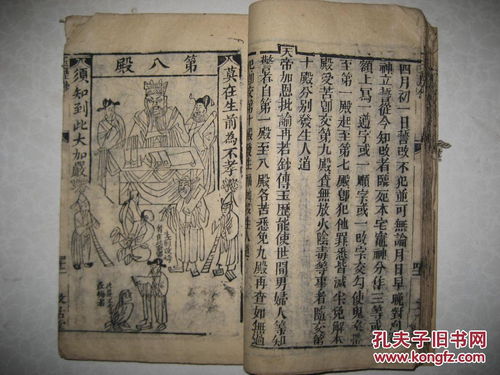 四月初一日誓改不犯並可無論月日早晚對
神立誓從今知改者臨死本宅竈神分作三等或
額上寫一遵字或一順字或一改字交勾使鬼
至第一殿起至第七殿卽犯他罪悉皆減半免解本
殿受苦卽交第九殿查無放火陰毒等事着隨交第
十殿分別發生人道
天帝加恩批諭再若鈔傳玉歷能使世間男婦人等知
警者自第一殿至八殿各苦悉免九殿再查如無過
第八殿
莫在生前為不孝
須知到此大加嚴
孔夫子旧书网
www.kongfz.com